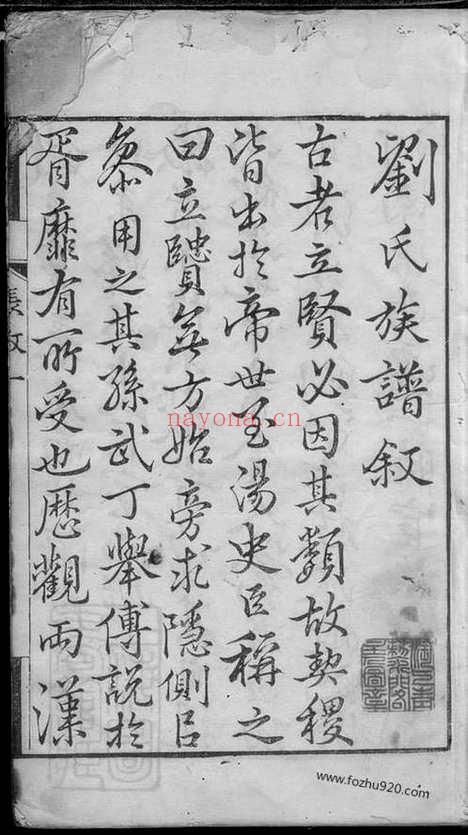 劉氏族譜叙
古者立賢必因其類故契稷
皆出於帝世至湯史臣稱之
曰立賢無方始旁求隱側呂
叅用之其孫武丁舉傅說於
胥靡有所受也歷觀兩漢
nayona.cn
www.fozhu920.com